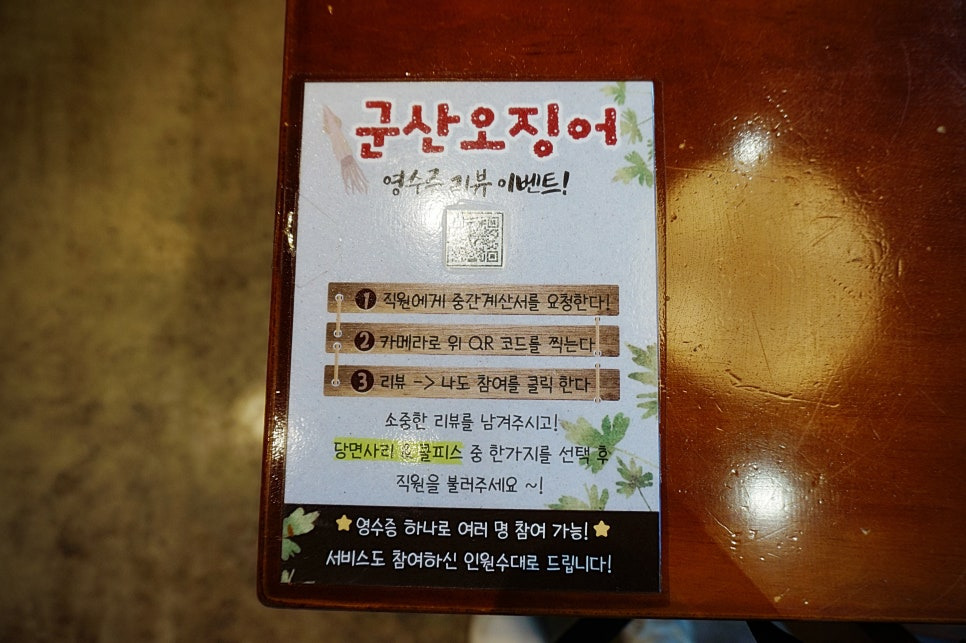 군산오징어
영수증 리뷰 이벤트!
1 직원에게 중간계산서를 요청한다!
2 카메라로 위 QR 코드를 찍는다
3 리뷰 -> 나도 참여를 클릭 한다
소중한 리뷰를 남겨주시고!
당면사리 & 쿨피스 중 한가지를 선택 후
직원을 불러주세요 ~!
영수증 하나로 여러 명 참여 가능!
서비스도 참여하신 인원수대로 드립니다!